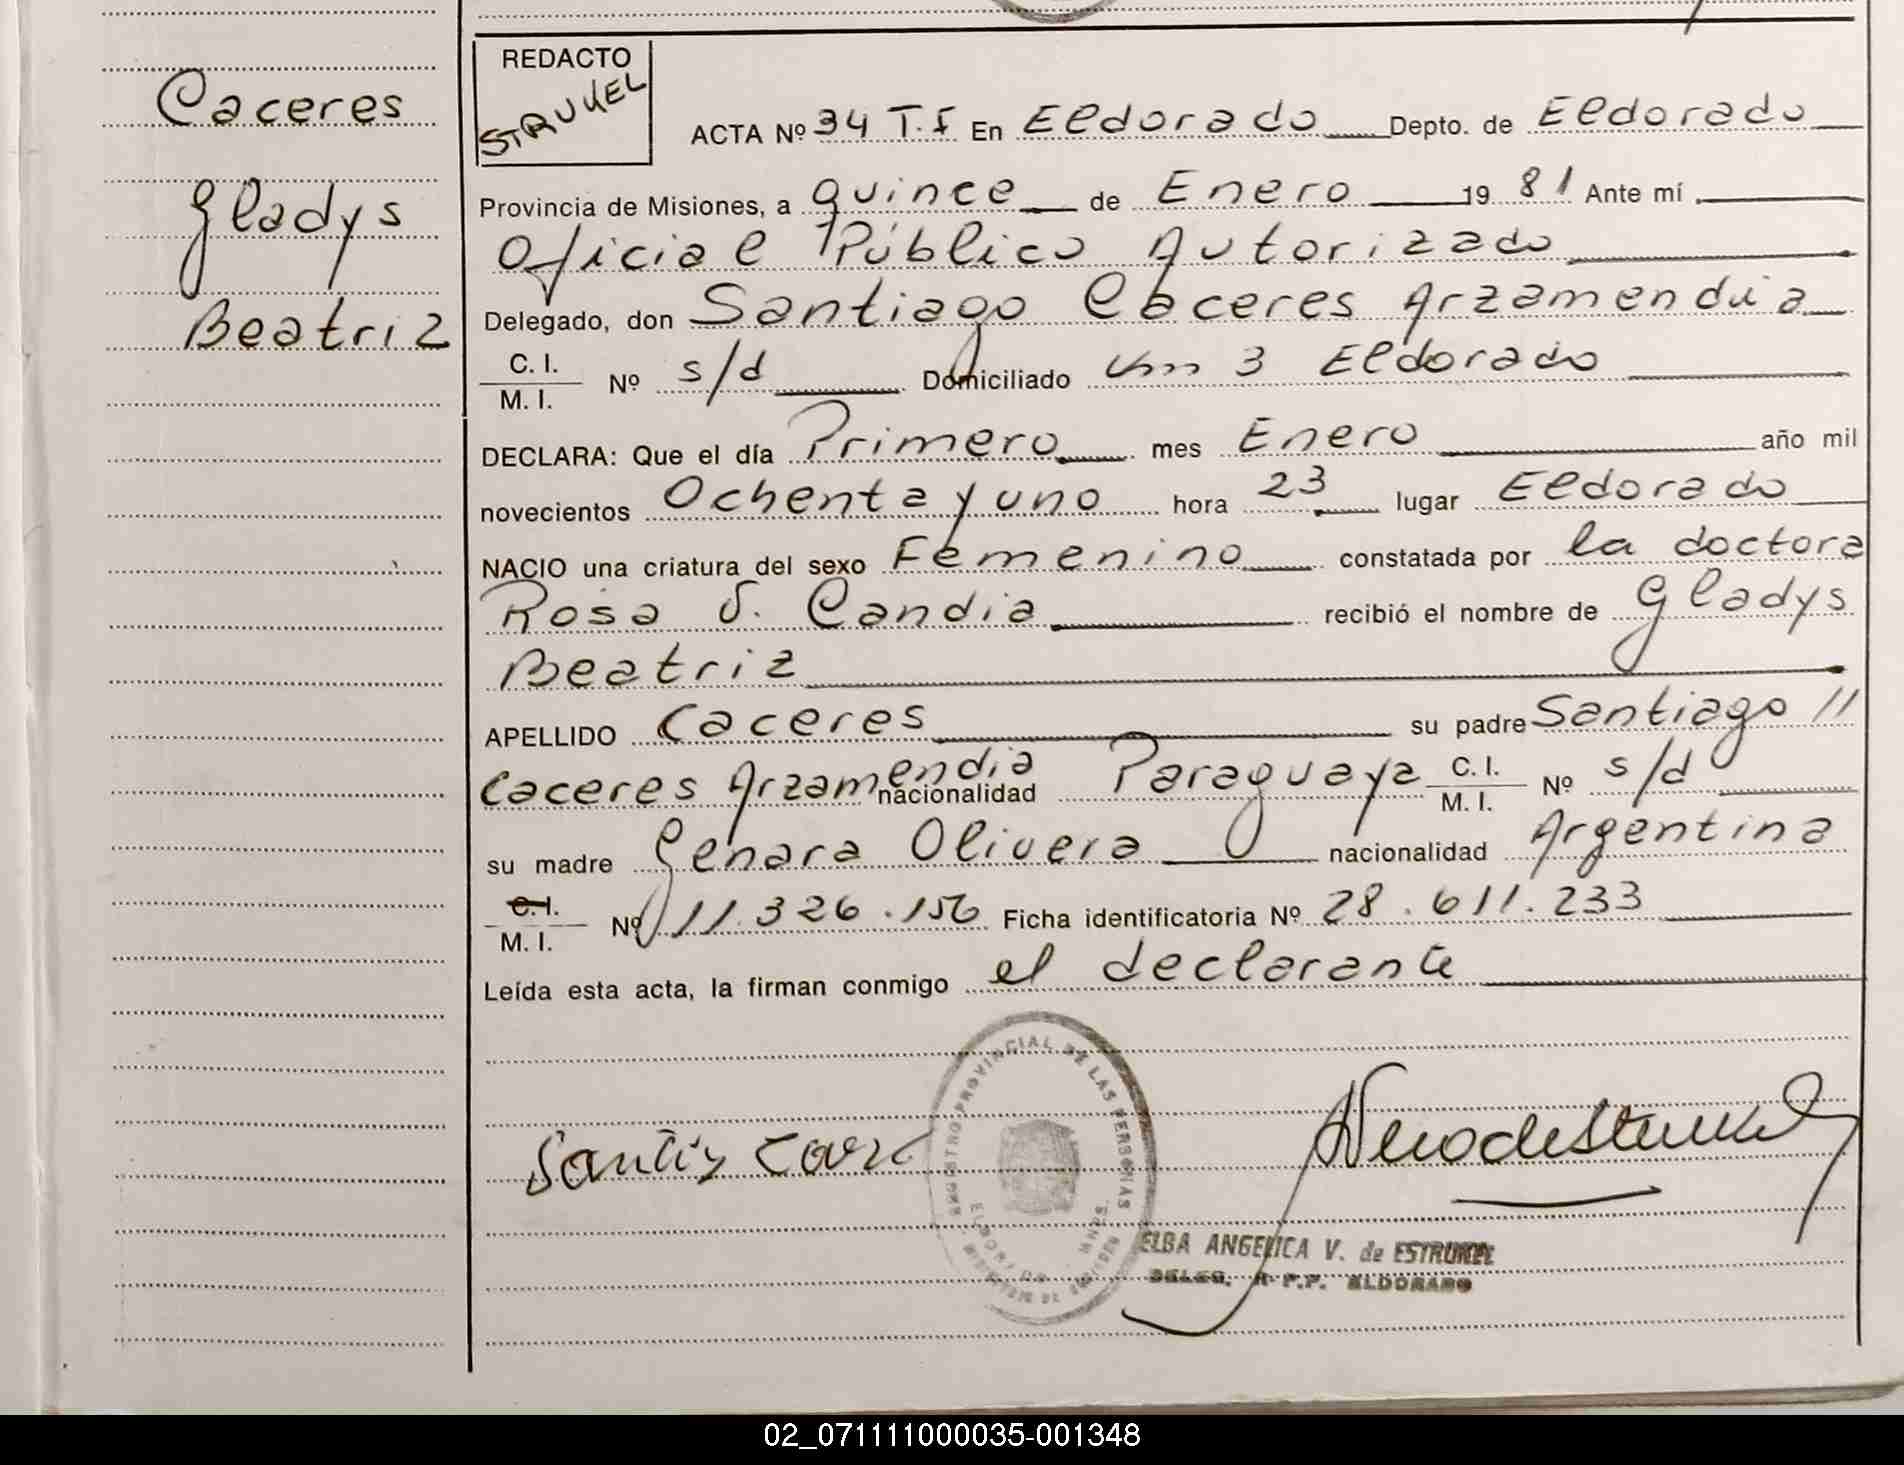 Caceres
Gladys
Beatriz
REDACTO
STRUKEL
ACTA Nº 34 T.I En Eldorado Depto. de Eldorado
Provincia de Misiones, a quince de Enero 19 81 Ante mí
Oficial Público Autorizado
Delegado, don Santiago Caceres Arzamendia
C. I.
M. I. Nº s/d Domiciliado Km 3 Eldorado
DECLARA: Que el día Primero mes Enero año mil
novecientos Ochenta y uno hora 23 lugar Eldorado
NACIO una criatura del sexo Femenino constatada por la doctora
Rosa S. Candia recibió el nombre de Gladys
Beatriz
APELLIDO Caceres su padre Santiago //
Caceres Arzamendia nacionalidad Paraguaya C. I. M. I. Nº s/d
su madre Genara Olivera nacionalidad Argentina
C. I.
M. I. Nº 11.326.156 Ficha identificatoria Nº 28.611.233
Leída esta acta, la firman conmigo el declarante
REGISTRO PROVINCIAL DE LAS PERSONAS
ELDORADO MNES.
ELBA ANGELICA V. de ESTRUKEL
DELEG. R.P.P. ELDORADO
02_071111000035-001348